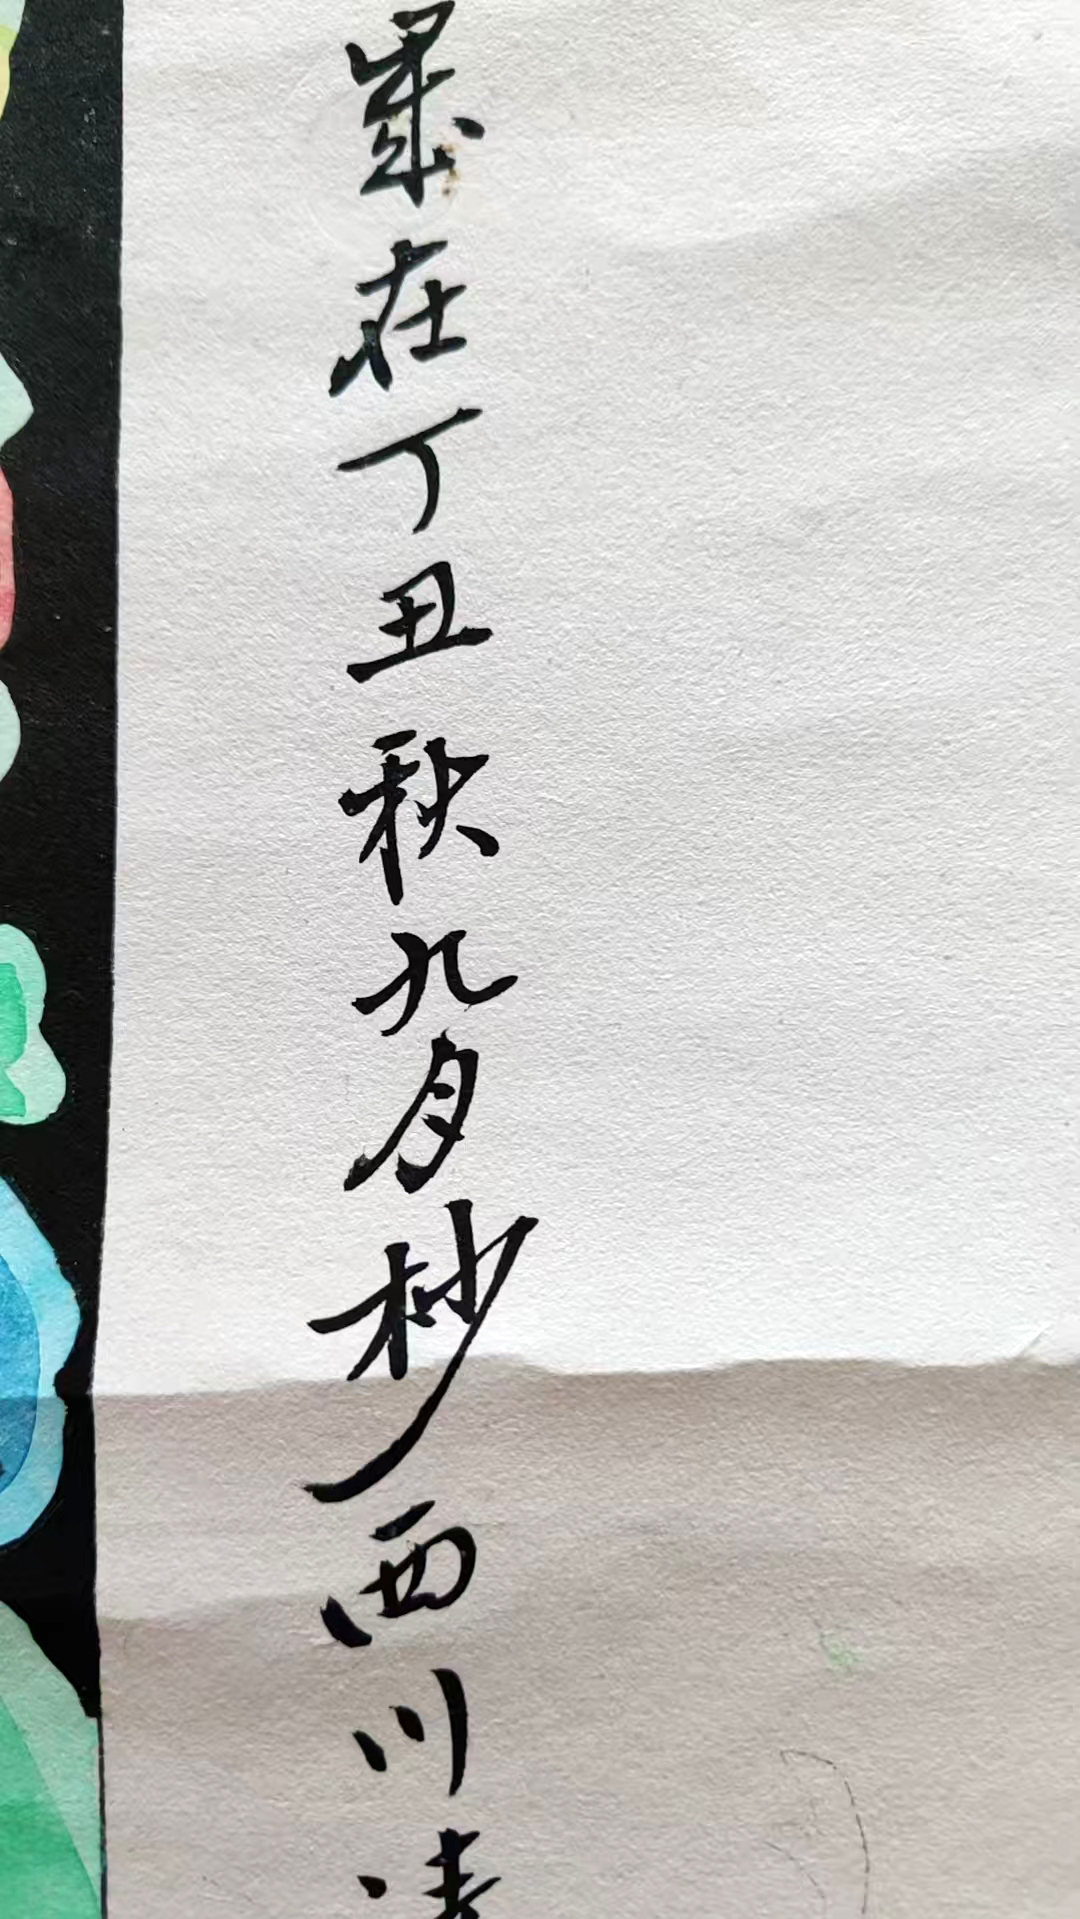 在丁丑秋九月杪西川